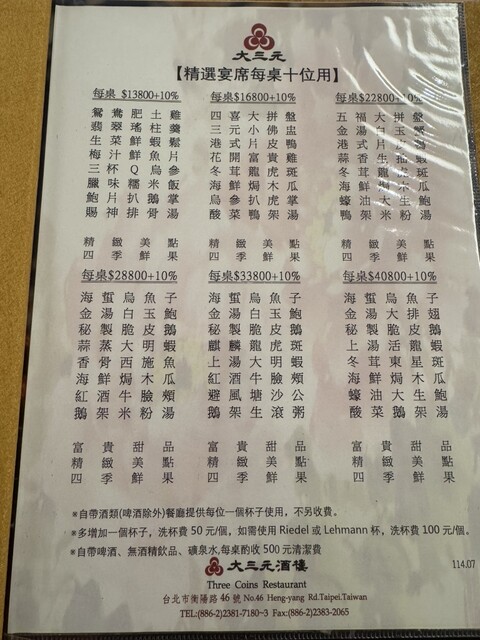 大三元
【精選宴席每桌十位用】
每桌 $13800+10%
鴛鴦肥土雞
翡翠瑤柱羹
生菜鮮魚鬆
梅汁鮮魚片
三杯Q烏參
臘味糯米飯
鮑片扒鵝掌
賜神排骨湯
精緻美點
四季鮮果
每桌$16800+10%
四喜大拼盤
三元小佛盅
港式片皮鴨
花開富貴雞
冬茸龍虎斑
海鮮焗木瓜
烏參扒虎掌
酸菜鴨架湯
精緻美點
四季鮮果
每桌$22800+10%
五福大拼盤
金湯白玉
港式片皮鴨
蒜香生抽蝦
冬茸龍虎斑
海鮮焗木瓜
蠔油大生
鴨架米粉湯
精緻美點
四季鮮果
每桌$28800+10%
海蜇烏魚子
金湯白玉鮑
秘製脆皮鵝
蒜蒸大明蝦
香骨西施魚
海鮮焗木瓜
紅酒牛臉頰
鵝架米粉湯
富貴甜品
精緻美點
四季鮮果
每桌$33800+10%
海蜇烏魚子
金湯白玉鮑
秘製脆皮鵝
麒麟龍虎斑
上湯大明蝦
紅酒牛臉頰
避風塘沙公
鵝架生滾粥
富貴甜品
精緻美點
四季鮮果
每桌$40800+10%
海蜇烏魚子
金湯大排翅
秘製脆皮鵝
上湯活龍蝦
冬茸東星斑
海鮮焗木瓜
蠔油大鮑
酸菜鵝架湯
富貴甜品
精緻美點
四季鮮果
※自帶酒類(啤酒除外)餐廳提供每位一個杯子使用，不另收費。
※多增加一個杯子，洗杯費50元/個，如需使用Riedel或Lehmann杯，洗杯費100元/個。
※自帶啤酒、無酒精飲品、礦泉水,每桌酌收500元清潔費
大三元酒樓
114.07
Three Coins Restaurant
台北市衡陽路46號 No.46 Heng-yang Rd.Taipei.Taiwan
TEL:(886-2)2381-7180~3 Fax:(886-2)2383-2065